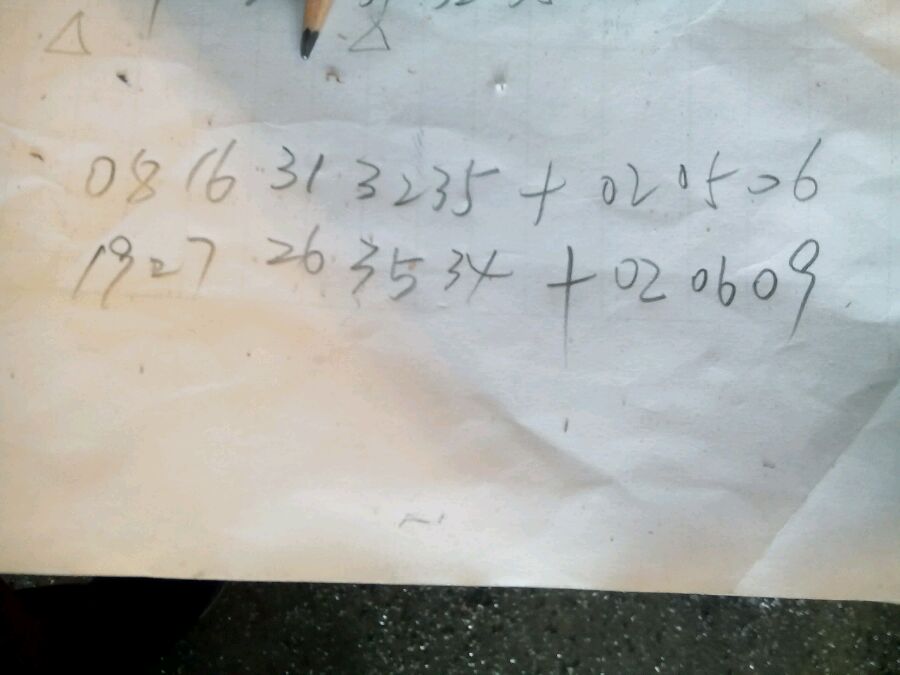 08 16 31 3235 + 02 05 06
1927 26 35 34 + 02 06 09